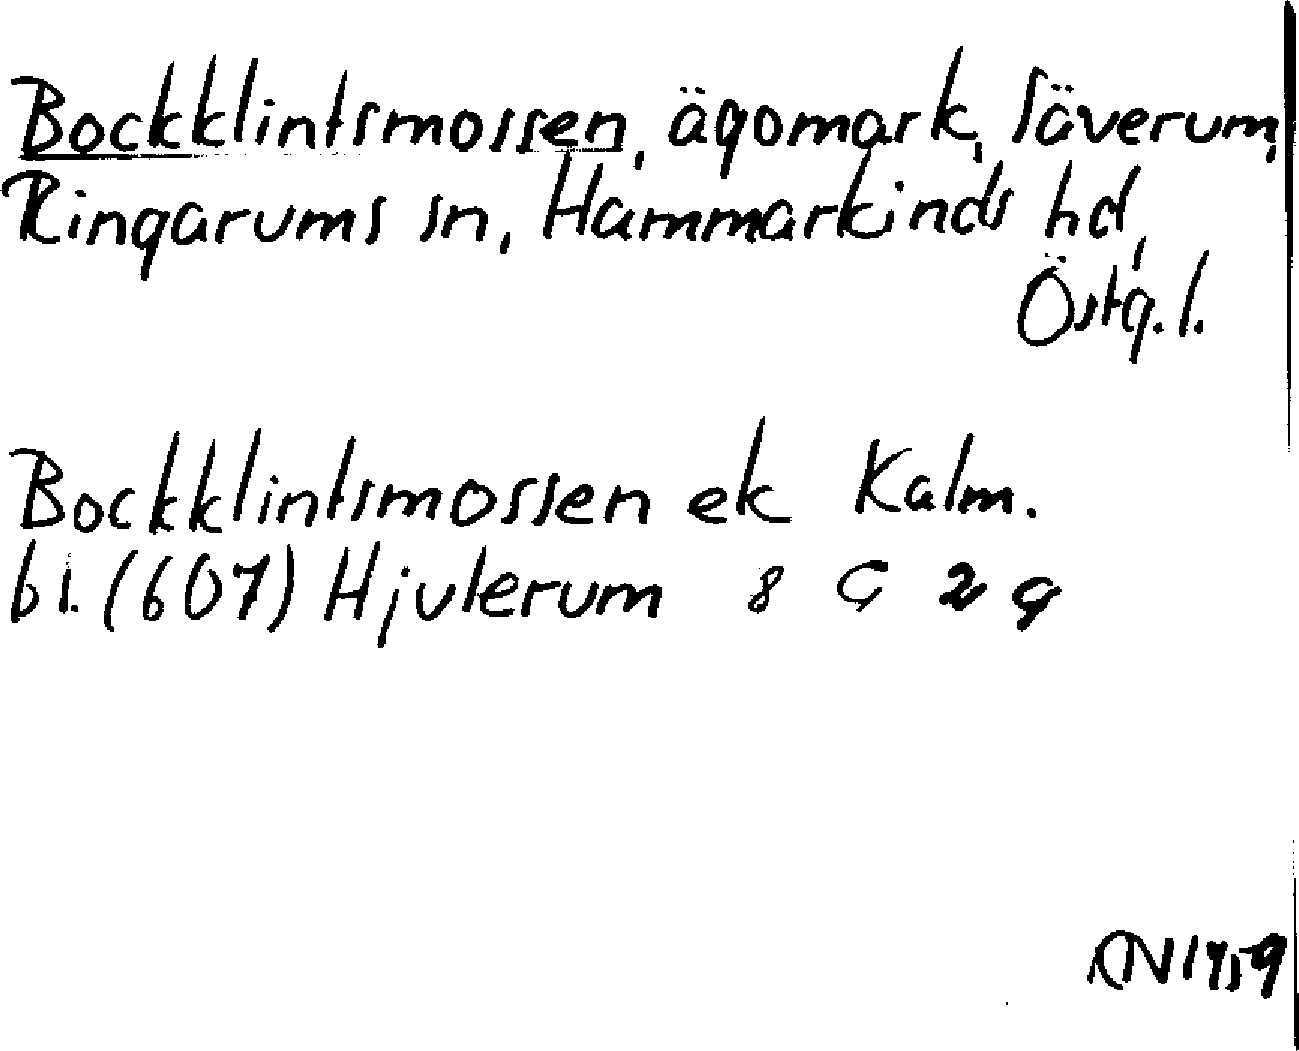 Bockklintsmossen, ägomark, Säverum,
Ringarums sn, Hammarkinds hd,
Östg.l.
Bockklintsmossen ek Kalm.
bl. (607) Hjulerum 8 G 2 g